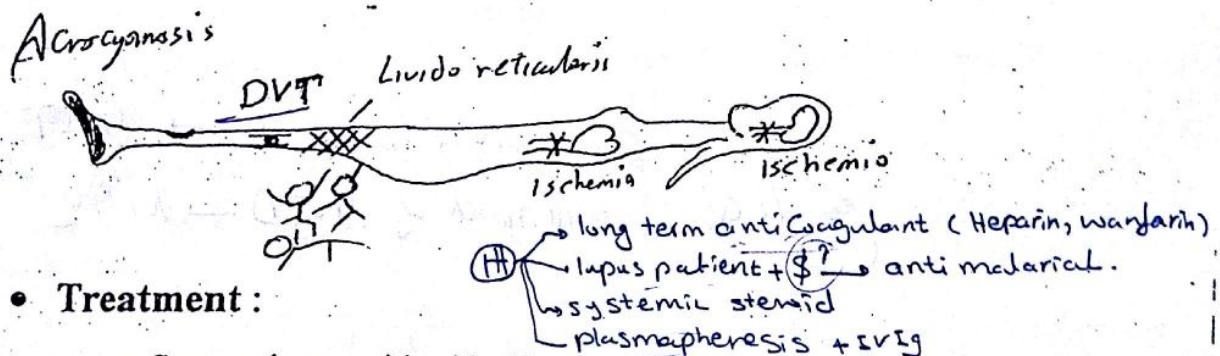 Acrocyanosis
DVT
Livido reticularis
Ischemia
Ischemia
ttt
long term anticoagulant (Heparin, warfarin)
lupus patient + $? → anti malarial.
systemic steroid
plasmapheresis + IVIg
• Treatment :